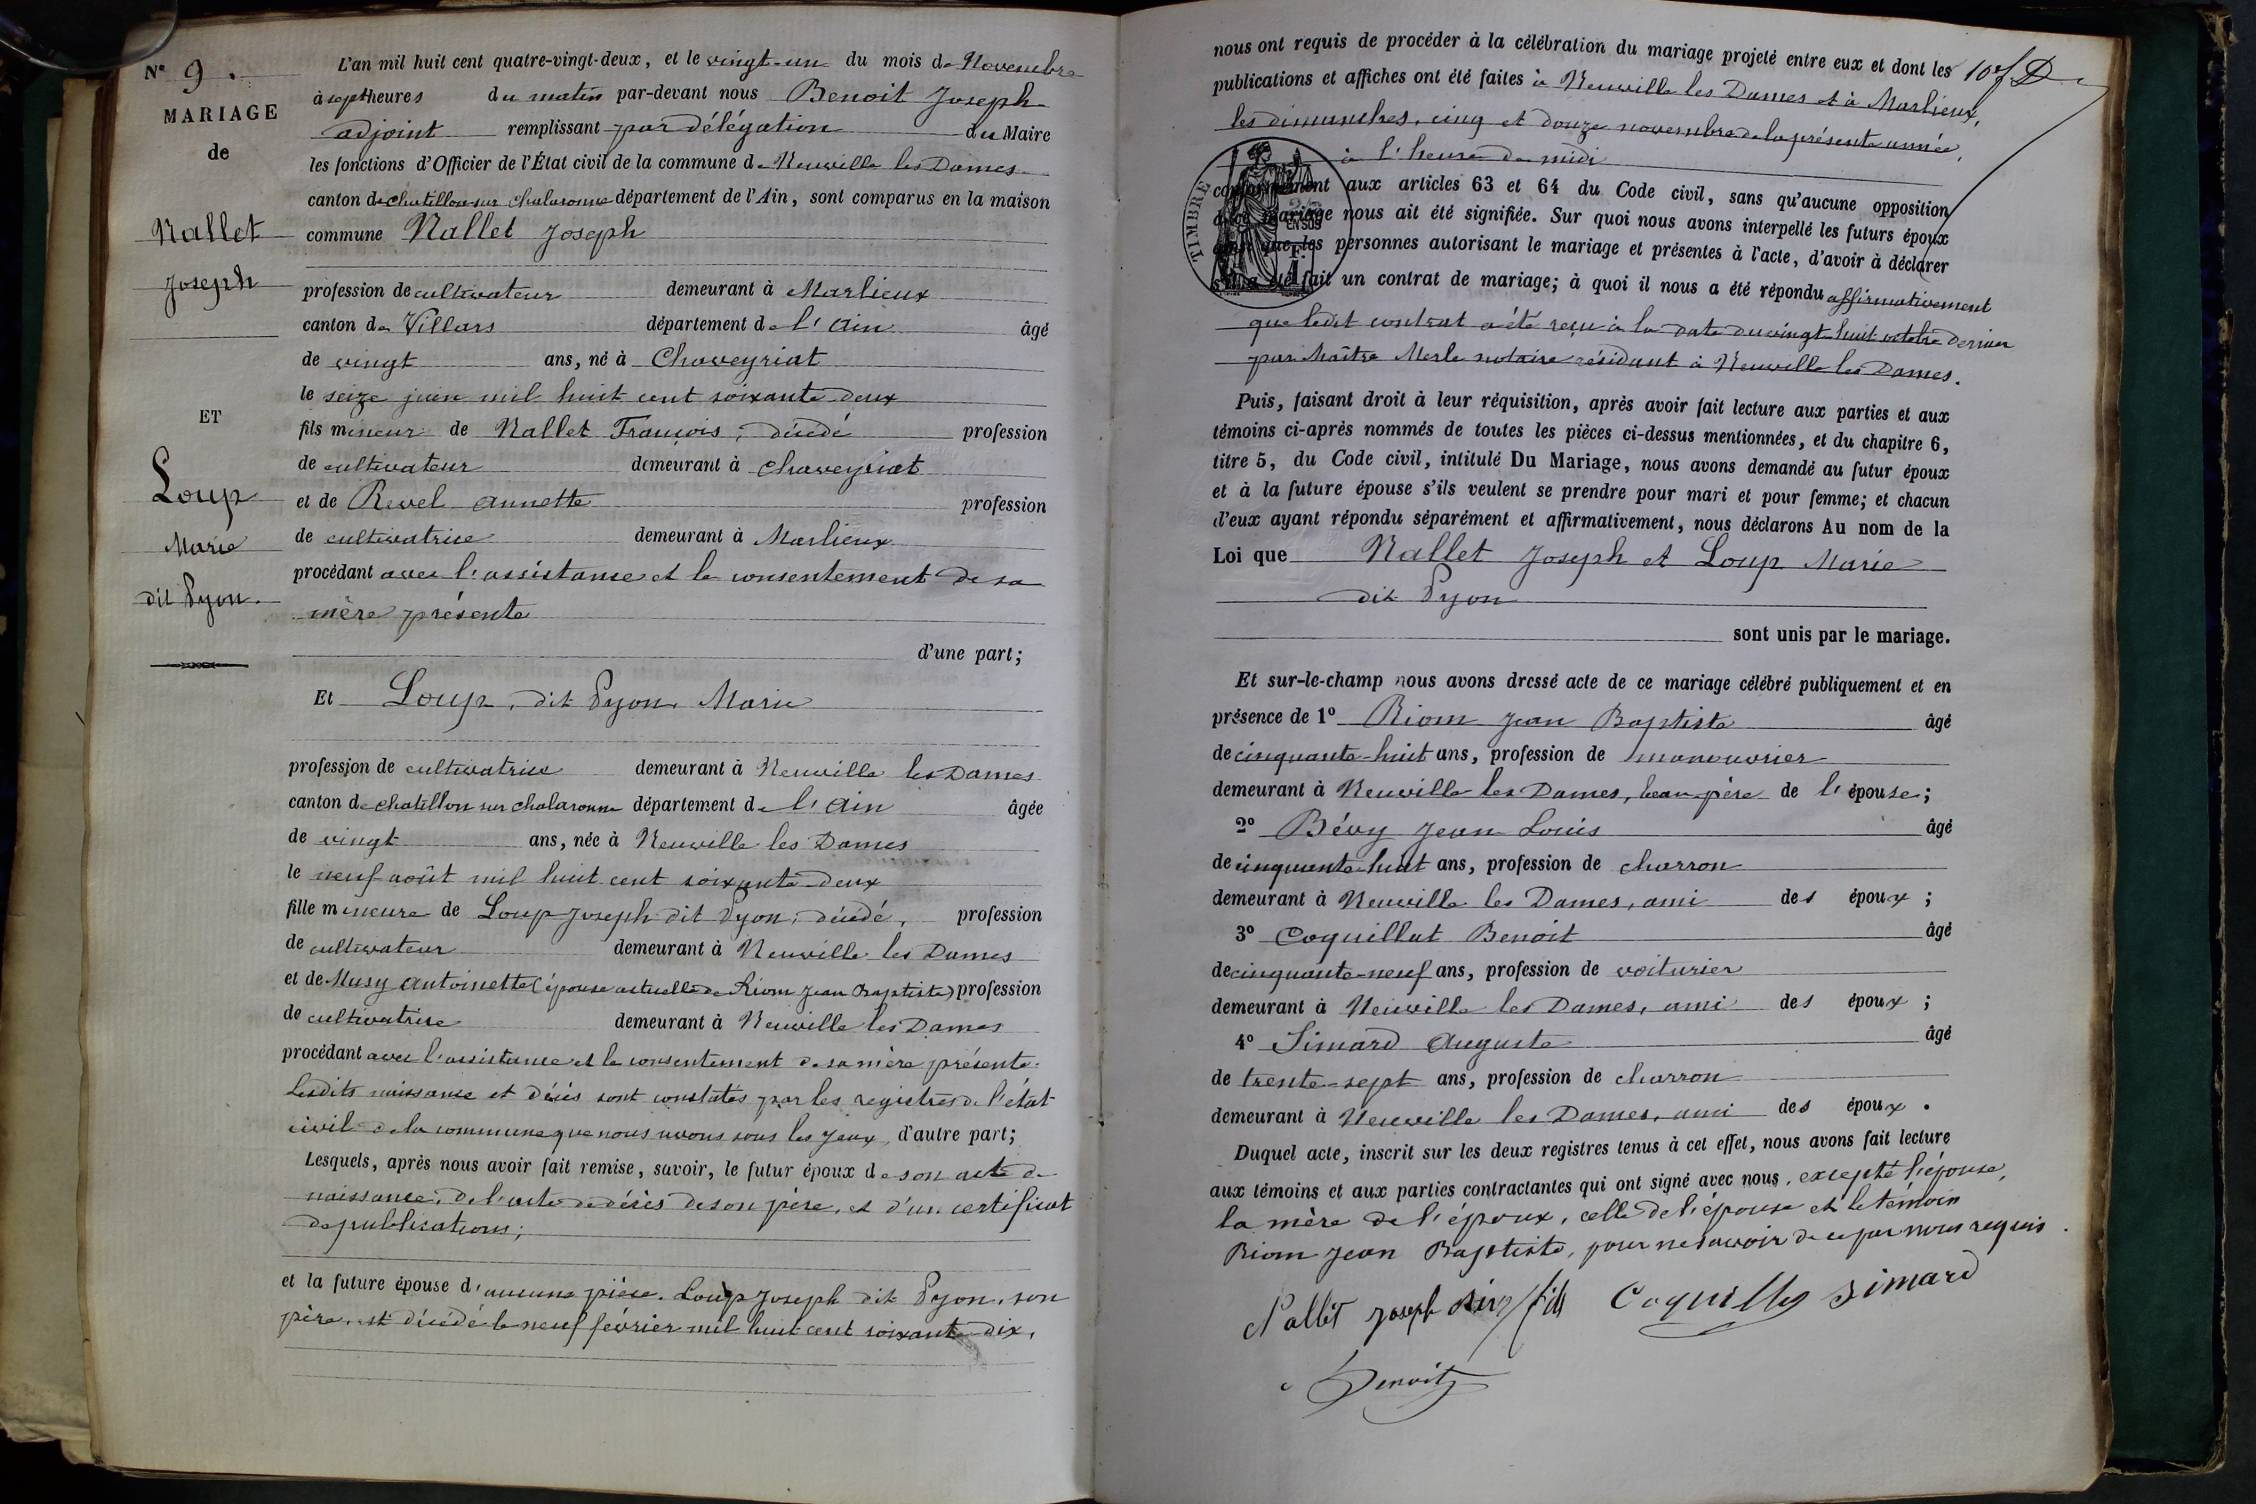 N° 9.
MARIAGE
de
Nallet
Joseph
ET
Loup
Marie
dit Pyon.
L'an mil huit cent quatre-vingt-deux, et le vingt-un du mois de Novembre
à sept heures du matin par-devant nous Benoit Joseph
adjoint remplissant par délégation du Maire
les fonctions d'Officier de l'État civil de la commune de Neuville les Dames
canton de Chatillon sur Chalaronne département de l'Ain, sont comparus en la maison
commune Nallet Joseph
profession de cultivateur demeurant à Marlieux
canton de Villars département de l'Ain âgé
de vingt ans, né à Chaveyriat
le seize juin mil huit cent soixante deux
fils mineur de Nallet François, décédé profession
de cultivateur demeurant à Chaveyriat
et de Revel Annette profession
de cultivatrice demeurant à Marlieux
procédant avec l'assistance et le consentement de sa
mère présente
d'une part;
Et Loup, dit Pyon, Marie
profession de cultivatrice demeurant à Neuville les Dames
canton de chatillon sur chalaronne département de l'Ain âgée
de vingt ans, née à Neuville les Dames
le neuf août mil huit cent soixante-deux
fille mineure de Loup Joseph dit Pyon, décédé, profession
de cultivateur demeurant à Neuville les Dames
et de Musy Antoinette (épouse actuelle de Riom Jean Baptiste) profession
de cultivatrice demeurant à Neuville les Dames
procédant avec l'assistance et le consentement de sa mère présente.
Lesdits naissance et décès sont constatés par les registres de l'état
civil de la commune que nous avons sous les yeux, d'autre part;
Lesquels, après nous avoir fait remise, savoir, le futur époux de son acte de
naissance, de l'acte de décès de son père, et d'un certificat
de publications;
et la future épouse d'aucune pièce. Loup Joseph dit Pyon, son
père, est décédé le neuf février mil huit cent soixante-dix,
nous ont requis de procéder à la célébration du mariage projeté entre eux et dont les
publications et affiches ont été faites à Neuville les Dames et à Marlieux,
les dimanches, cinq et douze novembre de la présente année,
à l'heure de midi
TIMBRE
conformément aux articles 63 et 64 du Code civil, sans qu'aucune opposition
à ce mariage nous ait été signifiée. Sur quoi nous avons interpellé les futurs époux
ainsi que les personnes autorisant le mariage et présentes à l'acte, d'avoir à déclarer
s'il a été fait un contrat de mariage; à quoi il nous a été répondu affirmativement
que ledit contrat a été reçu à la date du vingt-huit octobre dernier
par Maître Merle notaire résidant à Neuville les Dames.
Puis, faisant droit à leur réquisition, après avoir fait lecture aux parties et aux
témoins ci-après nommés de toutes les pièces ci-dessus mentionnées, et du chapitre 6,
titre 5, du Code civil, intitulé Du Mariage, nous avons demandé au futur époux
et à la future épouse s'ils veulent se prendre pour mari et pour femme; et chacun
d'eux ayant répondu séparément et affirmativement, nous déclarons Au nom de la
Loi que Nallet Joseph et Loup Marie
dit Pyon
sont unis par le mariage.
Et sur-le-champ nous avons dressé acte de ce mariage célébré publiquement et en
présence de 1° Riom Jean Baptiste âgé
de cinquante-huit ans, profession de manouvrier
demeurant à Neuville les Dames, beau-père de l'épouse;
2° Bévy Jean Louis âgé
de cinquante-huit ans, profession de charron
demeurant à Neuville les Dames, ami des époux;
3° Coquillat Benoit âgé
de cinquante-neuf ans, profession de voiturier
demeurant à Neuville les Dames, ami des époux;
4° Simard Auguste âgé
de trente-sept ans, profession de charron
demeurant à Neuville les Dames, ami des époux.
Duquel acte, inscrit sur les deux registres tenus à cet effet, nous avons fait lecture
aux témoins et aux parties contractantes qui ont signé avec nous, excepté l'épouse,
la mère de l'époux, celle de l'épouse et le témoin
Riom Jean Baptiste, pour ne savoir de ce par nous requis.
Nallet Joseph Simard
Benoit